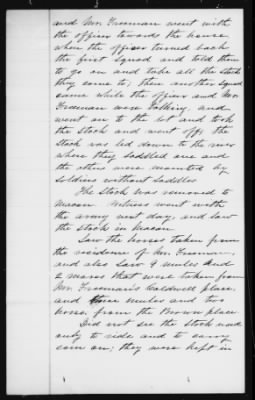 and Mr. Freeman went with
the officer towards the house
when the officer turned back
the first squad and told them
to go on and take all the stock
they came to; then another squad
came while the officer and Mr.
Freeman were talking and
went on to the lot and took
the stock and went off; the
stock was led down to the river
where they saddled one and
the others were mounted by
soldiers without saddles
The stock was removed to
Macon. Witness went with
the army next day, and saw
the stock in Macon
Saw the horses taken from
the residence of Mr. Freeman,
and also saw 9 mules and
2 mares that were taken from
Mr. Freeman's Caldwell place,
and three mules and two
horses from the Brown place
Did not see the stock used
only to ride and to carry
corn on; they were kept in